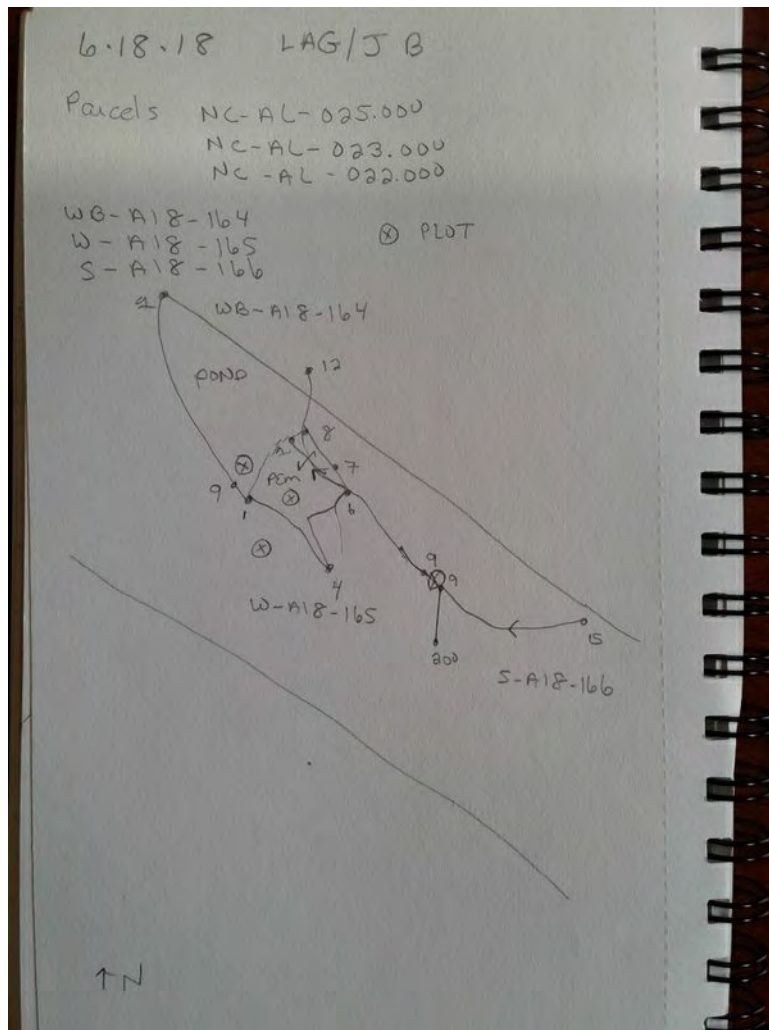 6.18.18 LAG/JB
Parcels NC-AL-025.000
NC-AL-023.000
NC-AL-022.000
WB-A18-164
W-A18-165
S-A18-166
PLOT
WB-A18-164
POND
12
8
7
PEM
9
1
6
4
9
9
W-A18-165
200
15
S-A18-166
↑N